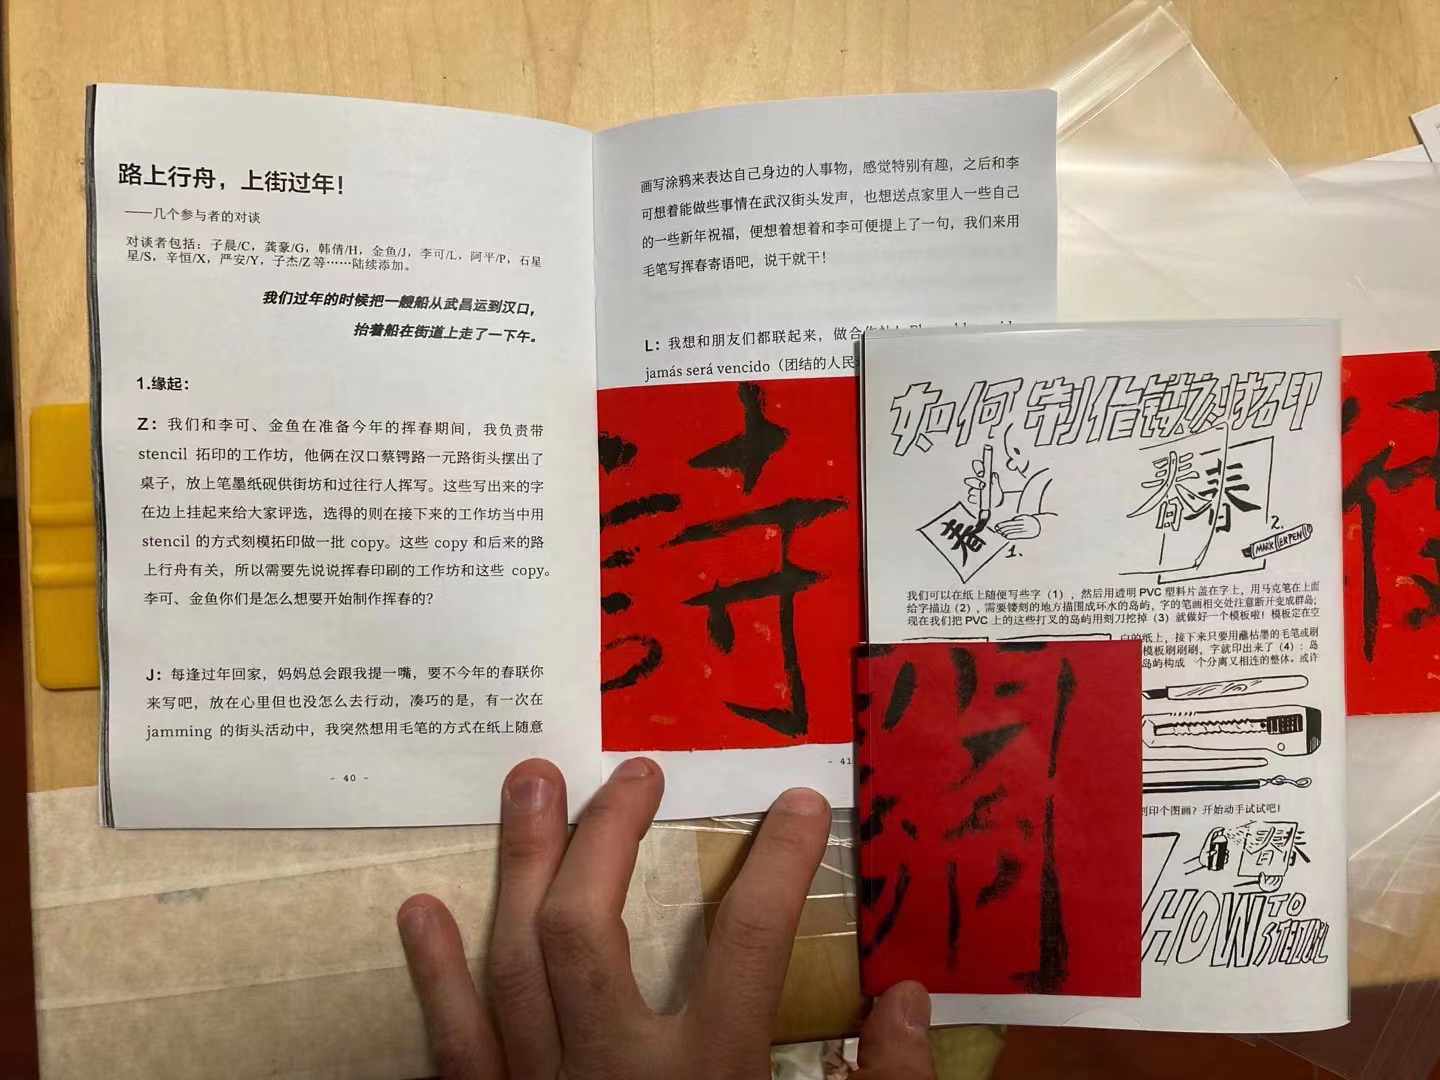 路上行舟，上街过年！
——几个参与者的对谈
对谈者包括：子晨/C，龚豪/G，韩倩/H，金鱼/J，李可/L，阿平/P，石星
星/S，辛恒/X，严安/Y，子杰/Z 等……陆续添加。
我们过年的时候把一艘船从武昌运到汉口，
抬着船在街道上走了一下午。
1.缘起：
Z：我们和李可、金鱼在准备今年的挥春期间，我负责带
stencil 拓印的工作坊，他俩在汉口蔡锷路一元路街头摆出了
桌子，放上笔墨纸砚供街坊和过往行人挥写。这些写出来的字
在边上挂起来给大家评选，选得的则在接下来的工作坊当中用
stencil 的方式刻模拓印做一批 copy。这些 copy 和后来的路
上行舟有关，所以需要先说说挥春印刷的工作坊和这些 copy。
李可、金鱼你们是怎么想要开始制作挥春的？
J：每逢过年回家，妈妈总会跟我提一嘴，要不今年的春联你
来写吧，放在心里但也没怎么去行动，凑巧的是，有一次在
jamming 的街头活动中，我突然想用毛笔的方式在纸上随意
- 40 -
画写涂鸦来表达自己身边的人事物，感觉特别有趣，之后和李
可想着能做些事情在武汉街头发声，也想送点家里人一些自己
的一些新年祝福，便想着想着和李可便提上了一句，我们来用
毛笔写挥春寄语吧，说干就干！
L：我想和朋友们都联起来，做合作社！El
jamás será vencido（团结的人民
詩
- 41
如何制作镂刻拓印
春
1.
春春
2.
MARKERPEN
我们可以在纸上随便写些字（1），然后用透明 PVC 塑料片盖在字上，用马克笔在上面
给字描边（2），需要镂刻的地方描围成环水的岛屿，字的笔画相交处注意断开变成群岛；
现在我们把 PVC 上的这些打叉的岛屿用刻刀挖掉（3）就做好一个模板啦！模板定在空
白的纸上，接下来只要用蘸枯墨的毛笔或刷
模板刷刷刷，字就印出来了（4）：岛
岛屿构成一个分离又相连的整体。或许
刻印个图画？开始动手试试吧！
春春
HOW TO
STENCIL